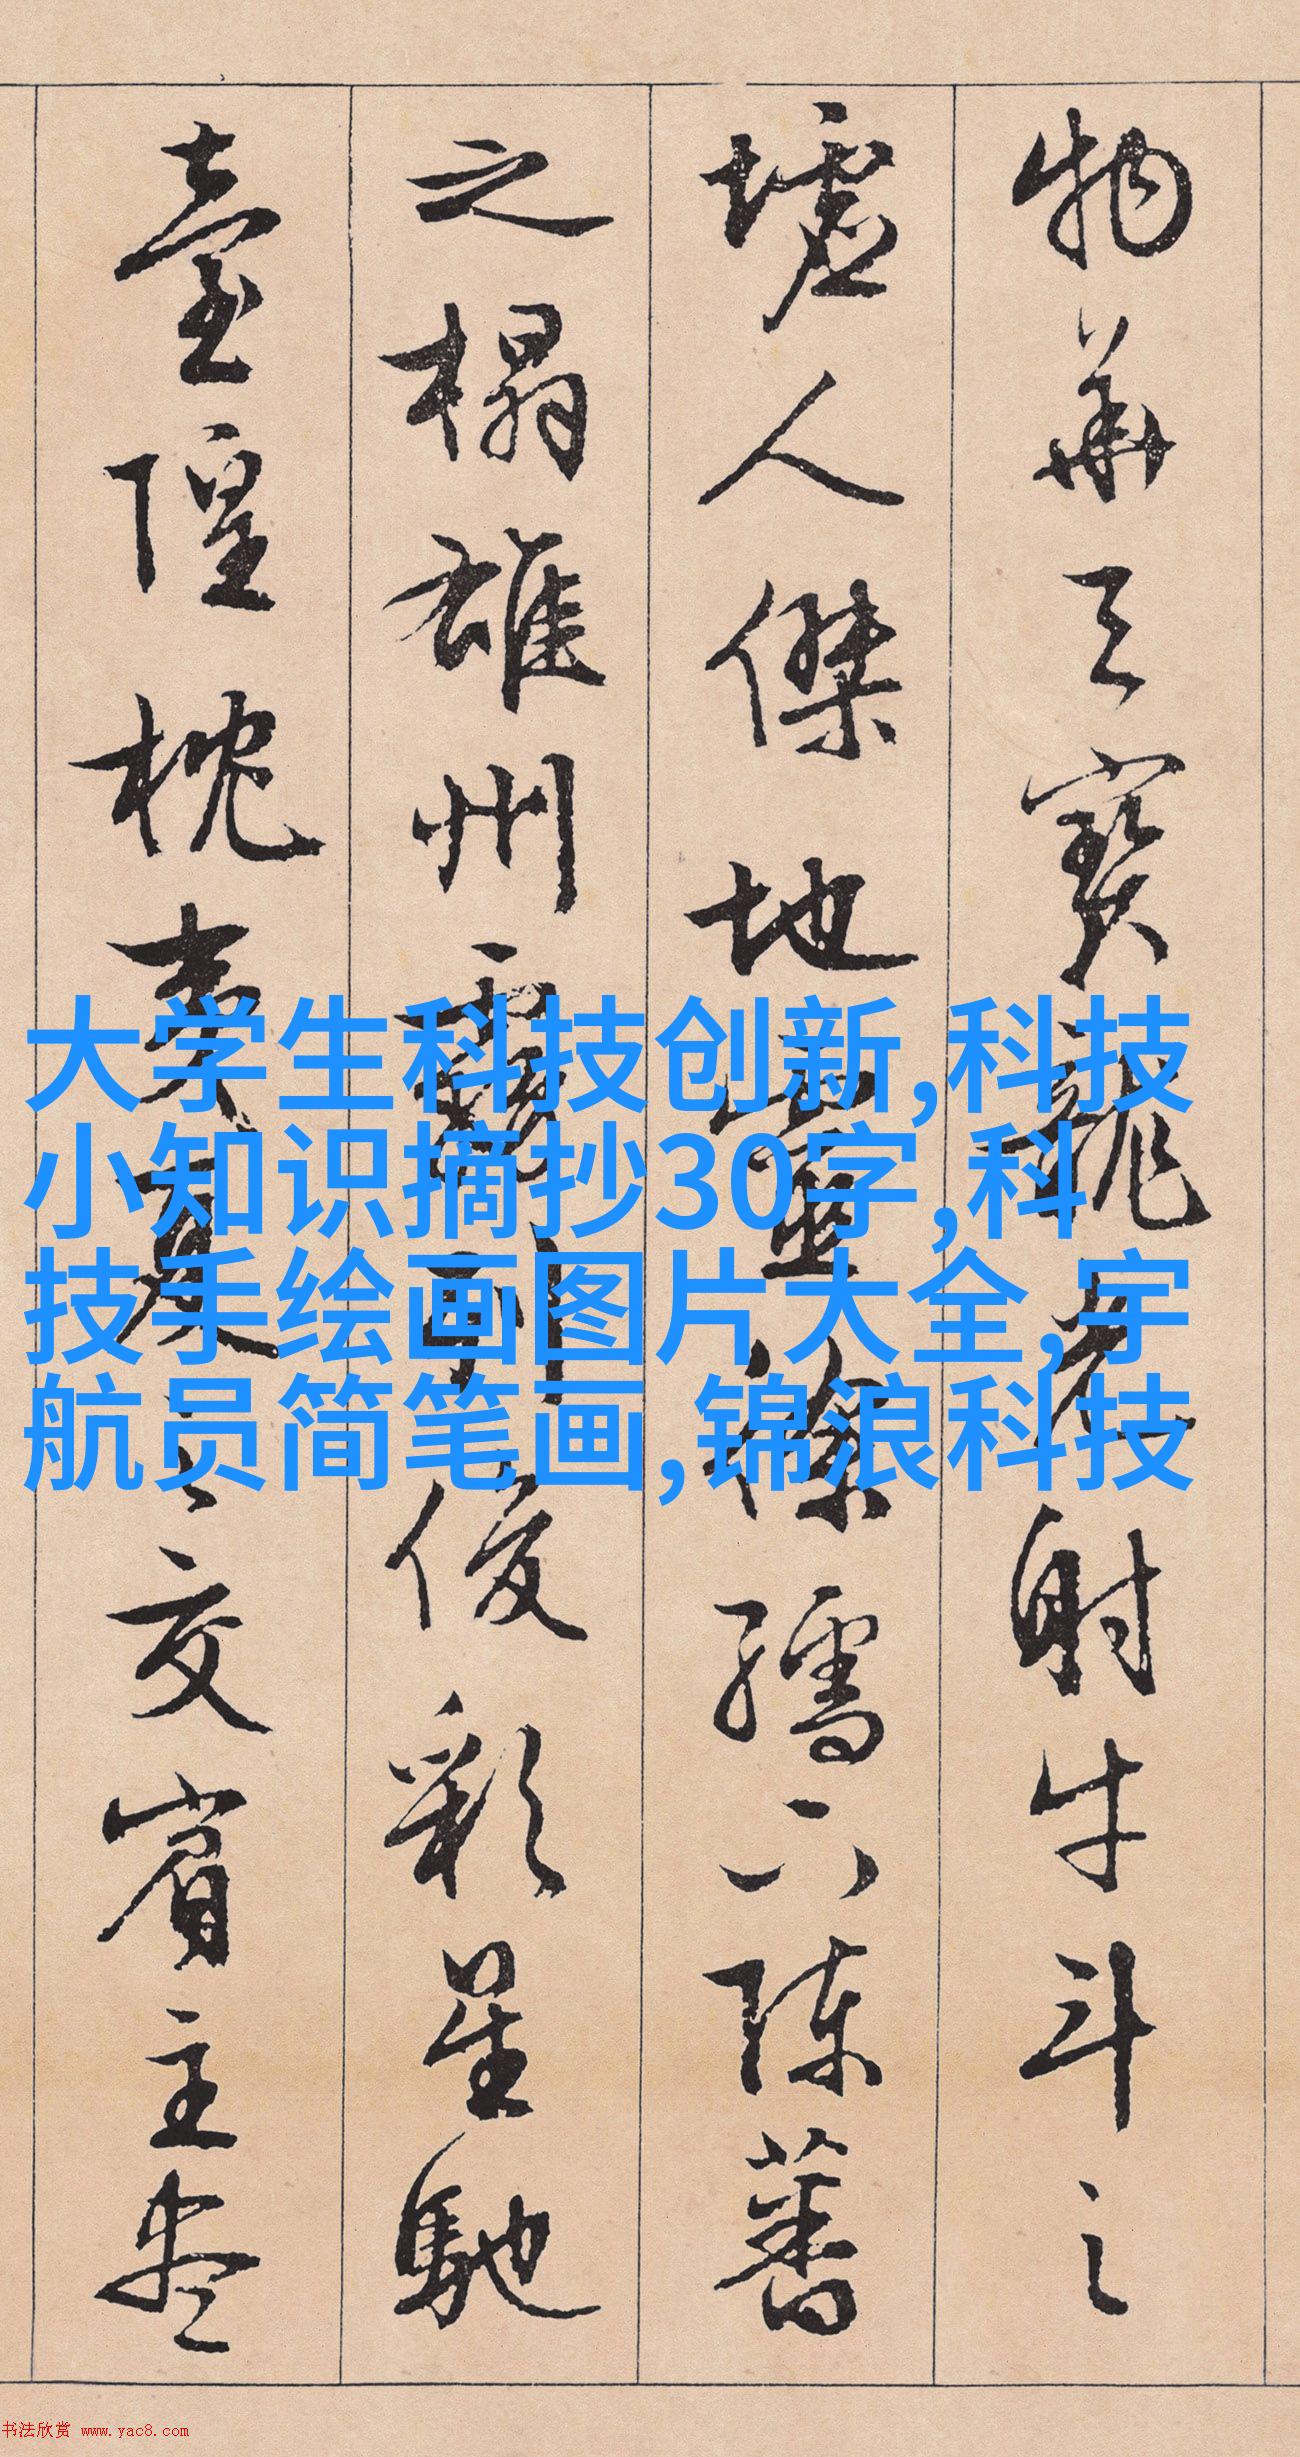 物華天寶龍光射牛斗之
墟人傑地靈徐孺下陳蕃
之榻雄州霧列俊彩星馳
臺隍枕夷夏之交賓主盡
大学生科技创新,科技
小知识摘抄30字,科
技手绘画图片大全,宇
航员简笔画,锦浪科技
书法欣赏 www.yac8.com